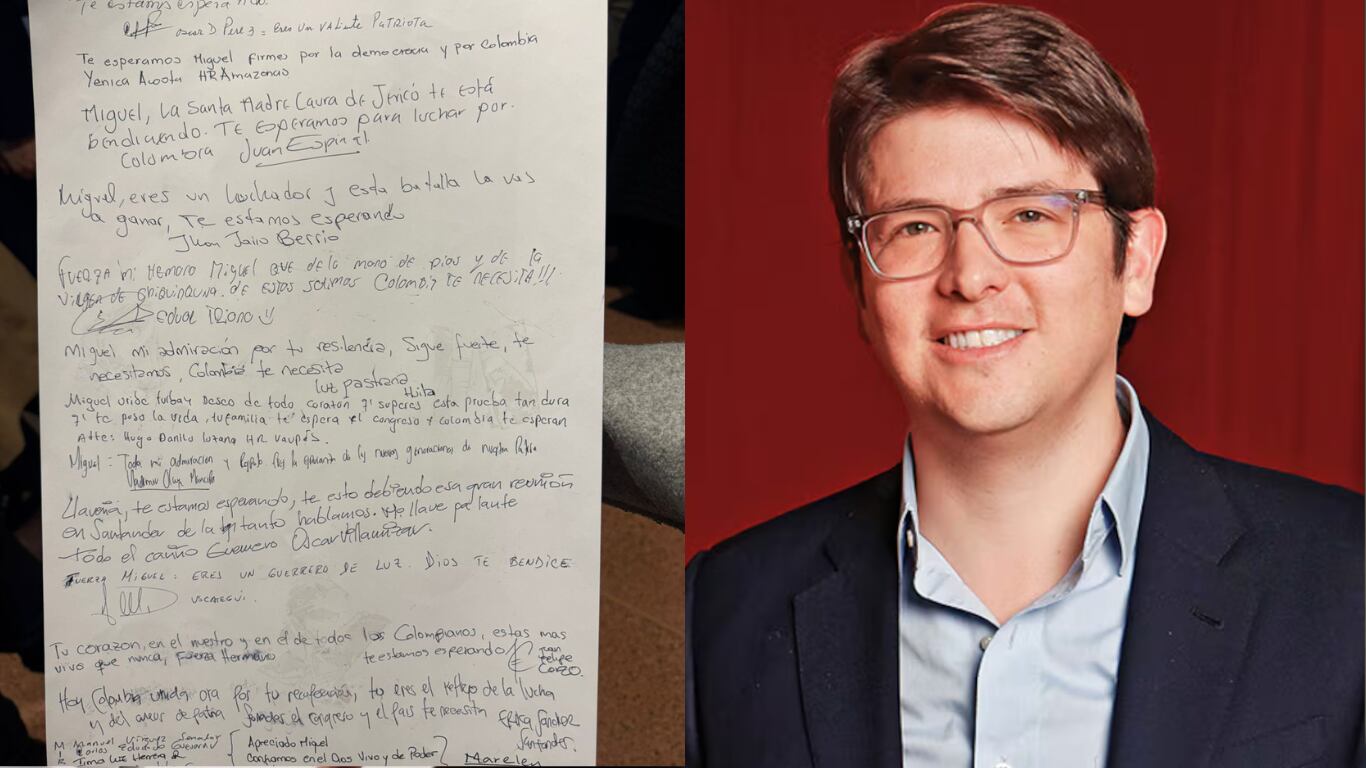 Te estamos esperando.
Oscar D Perez = Eres un valiente PATRIOTA
Te esperamos Miguel firmes por la democracia y por Colombia
Yenica Acosta HR Amazonas
Miguel, la Santa Madre Laura de Jericó te está
bendiciendo. Te esperamos para luchar por.
Colombia Juan Espinal
Miguel, eres un luchador y esta batalla la vas
a ganar, Te estamos esperando
Juan Jairo Berrio
Fuerza mi Hermoro Miguel que de la mano de Dios y de la
Virgen de Chiquinquira. de estas salimos Colombia TE NECESITA!!!
Eduar Triana
Miguel mi admiración por tu resilencia, Sigue fuerte, te
necesitamos, Colombia te necesita
Luz pastrana
Huila
Miguel Uribe turbay Deseo de todo corazón q' superes esta prueba tan dura
q' te puso la vida, tu familia te espera y el congreso y colombia te esperan
Atte: Hugo Danilo Lozano HR Vaupés.
Miguel: Toda mi admiración y de nuestra Patria
te estamos esperando, te esto debiendo esa gran reunión
en Santander de la q tanto hablamos. pa'lante
todo el cariño Guerrero Oscar Villamizar.
FUERZA MIGUEL: ERES UN GUERRERO DE LUZ. DIOS TE BENDICE
USCATEGUI.
Tu corazon, en el nuestro y en el de todos los Colombianos, estas mas
vivo que nunca, Fuerza Hermano te estamos esperando Juan
Felipe
Corzo.
Hoy Colombia unida ora por tu recuperación, tu eres el reflejo de la lucha
y del amor de patria el congreso y el pais te necesita Erika Sánchez
Santander.
Manuel Virguez
Carlos Eduardo Guevara
Irma Luz Herrera R
Apreciado Miguel
Confiamos en el Dios Vivo y de Poder
Marelen